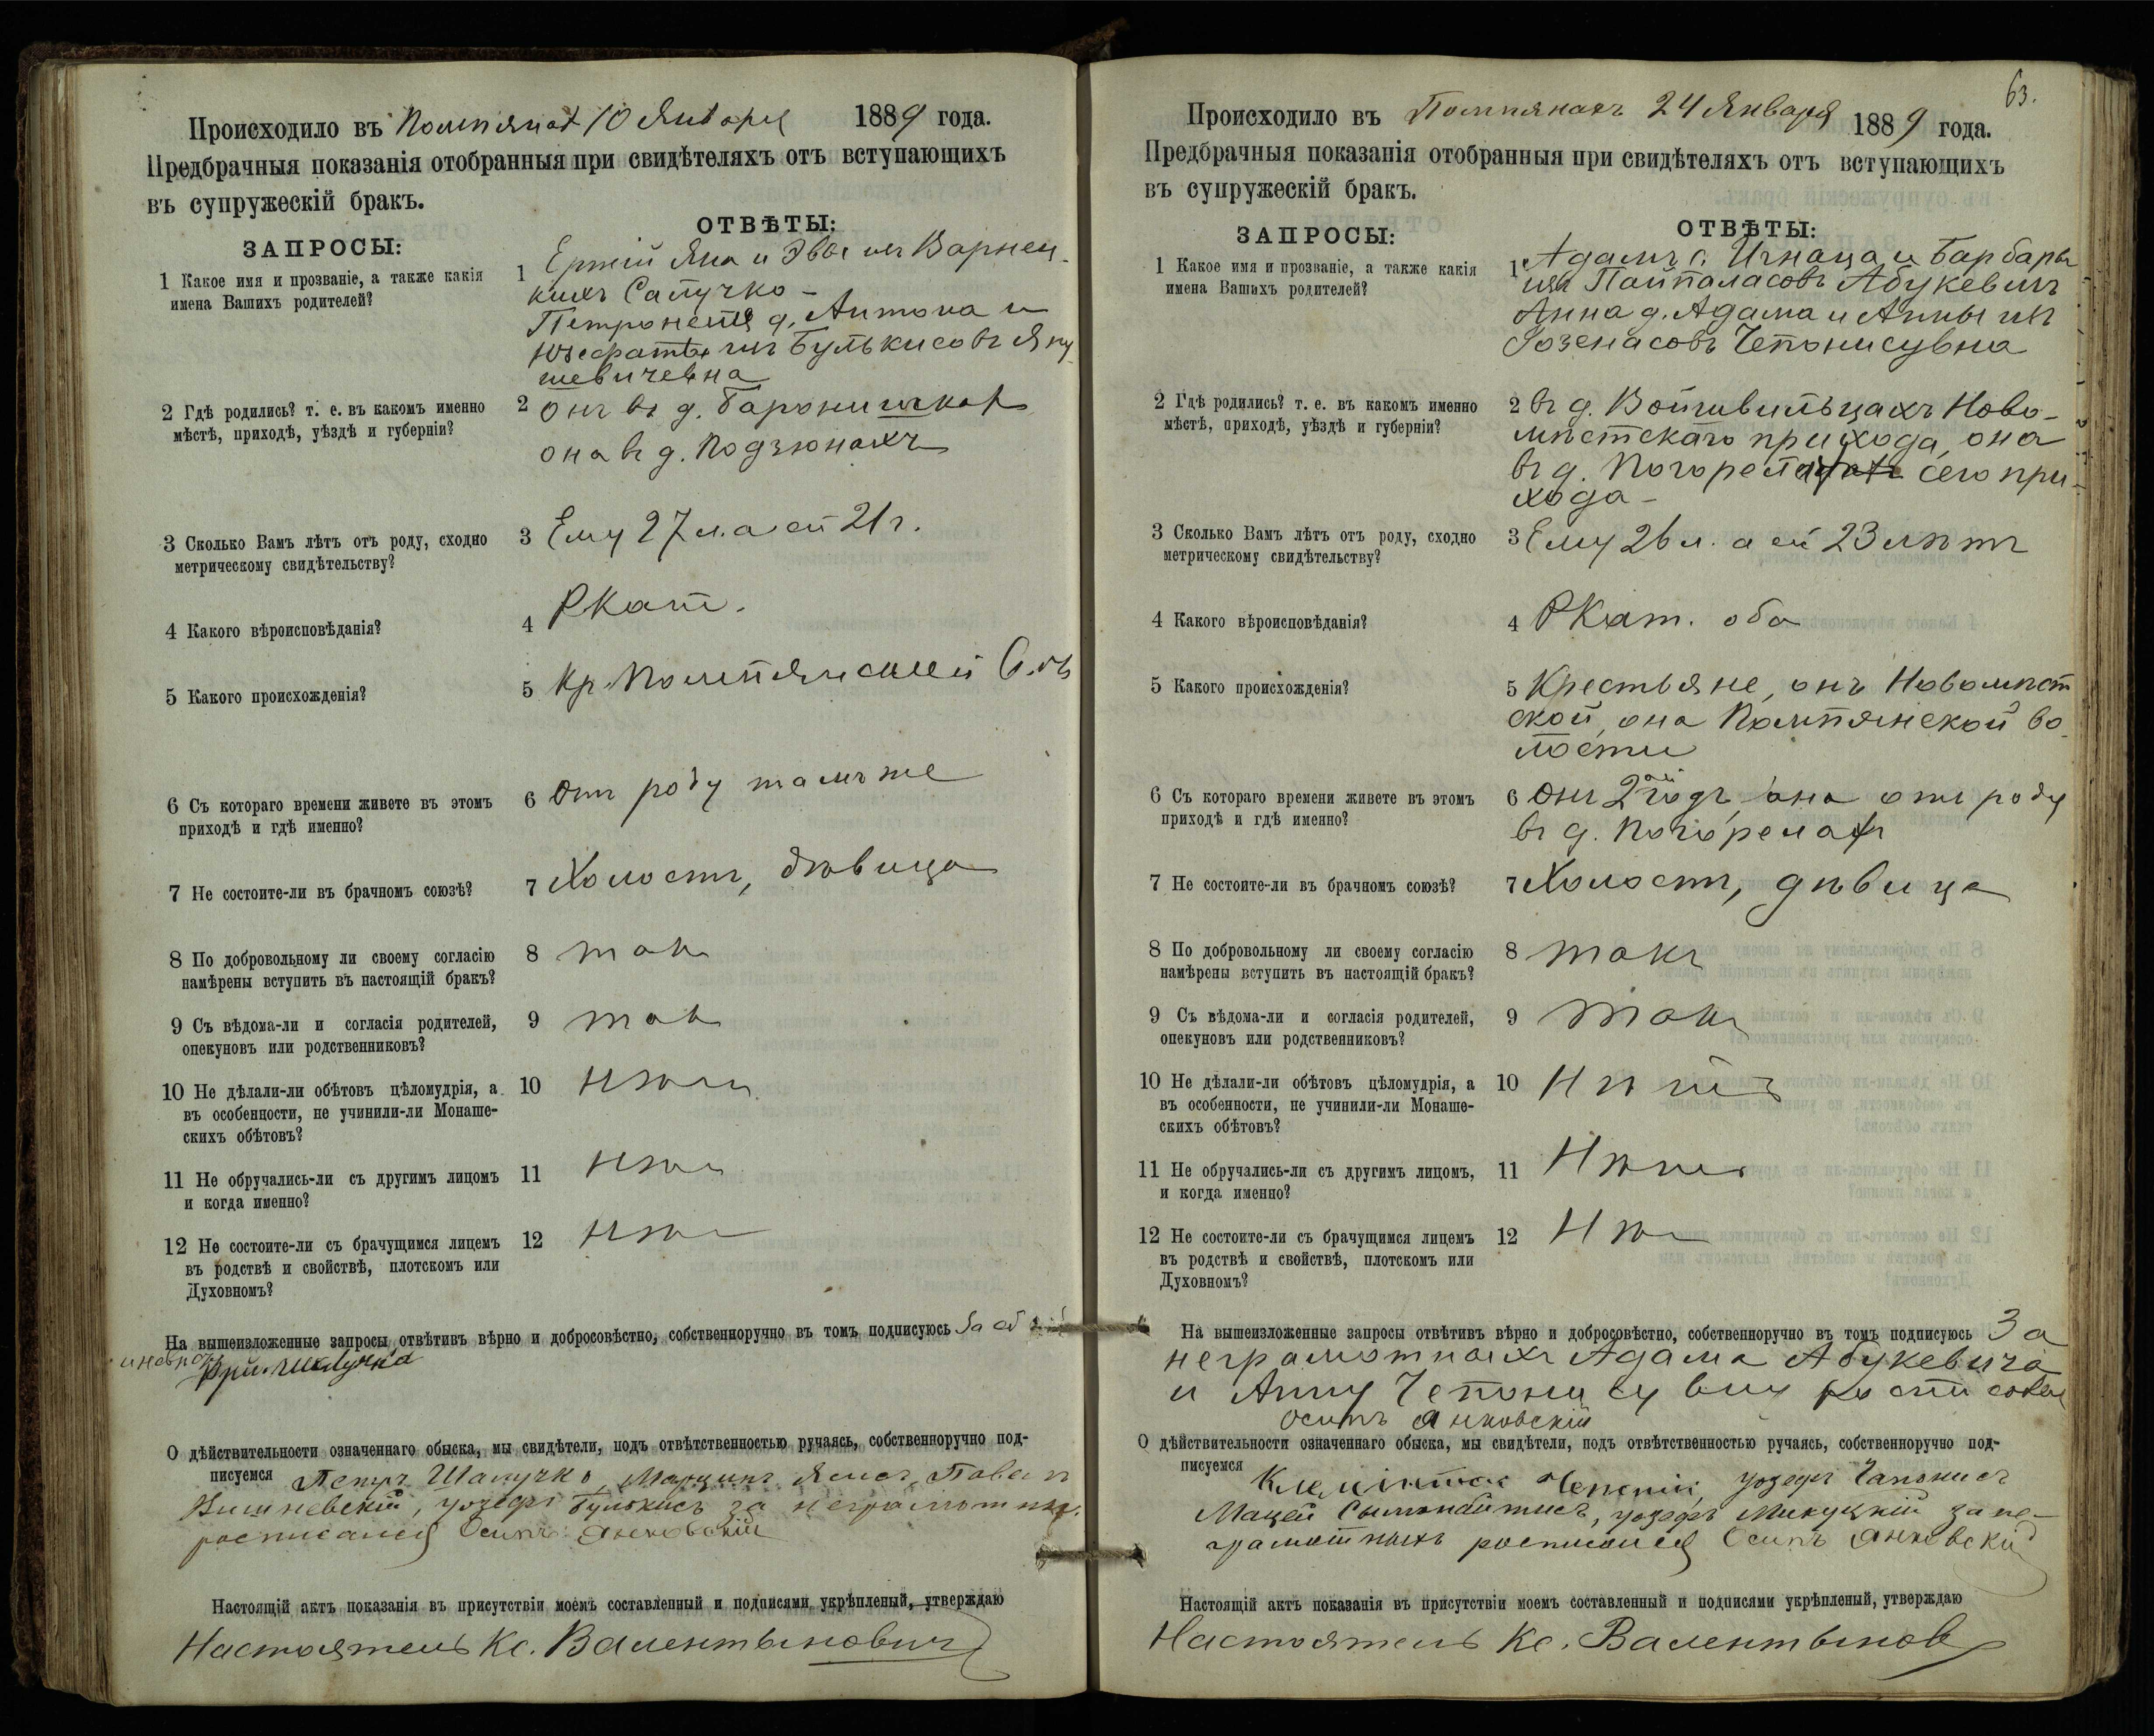 Происходило въ Помпянах 10 Января 1889 года.
Предбрачныя показанія отобранныя при свидѣтеляхъ отъ вступающихъ
въ супружескій бракъ.
ЗАПРОСЫ:
ОТВѢТЫ:
1 Какое имя и прозваніе, а также какія
имена Вашихъ родителей?
1 Ержій Яна и Эвы изъ Варнец-
кихъ Сапучко -
Петронеля д. Антона и
Юзефаты изъ Булькисовъ Яну-
шевичевна
2 Гдѣ родились? т. е. въ какомъ именно
мѣстѣ, приходѣ, уѣздѣ и губерніи?
2 онъ въ д. Баронишках
она въ д. Подзюнахъ
3 Сколько Вамъ лѣтъ отъ роду, сходно
метрическому свидѣтельству?
3 Ему 27 л. а ей 21 г.
4 Какого вѣроисповѣданія?
4 РКат.
5 Какого происхожденія?
5 Кр. Помпянской
6 Съ котораго времени живете въ этомъ
приходѣ и гдѣ именно?
6 отъ роду тамъ же
7 Не состоите-ли въ брачномъ союзѣ?
7 Холостъ, дѣвица
8 По добровольному ли своему согласію
намѣрены вступить въ настоящій бракъ?
8 такъ
9 Съ вѣдома-ли и согласія родителей,
опекуновъ или родственниковъ?
9 такъ
10 Не дѣлали-ли обѣтовъ цѣломудрія, а
въ особенности, не учинили-ли Монаше-
скихъ обѣтовъ?
10 Нѣтъ
11 Не обручались-ли съ другимъ лицомъ
и когда именно?
11 Нѣтъ
12 Не состоите-ли съ брачущимся лицемъ
въ родствѣ и свойствѣ, плотскомъ или
Духовномъ?
12 Нѣтъ
На вышеизложенные запросы отвѣтивъ вѣрно и добросовѣстно, собственноручно въ томъ подписуюсь За
О дѣйствительности означеннаго обыска, мы свидѣтели, подъ отвѣтственностью ручаясь, собственноручно под-
писуемся Петръ Шалучко, Марцинъ Павел
Вишневскій, Юзефъ Булькисъ за неграмотных
росписался Осипъ Янковскій
Настоящій актъ показанія въ присутствіи моемъ составленный и подписями укрѣпленый, утверждаю
Настоятель Кс. Валентынович
63.
Происходило въ Помпянахъ 24 Января 1889 года.
Предбрачныя показанія отобранныя при свидѣтеляхъ отъ вступающихъ
въ супружескій бракъ.
ЗАПРОСЫ:
ОТВѢТЫ:
1 Какое имя и прозваніе, а также какія
имена Вашихъ родителей?
1 Адамъ с. Игнаца и Барбары
изъ Пайпаласовъ Абукевичъ
Анна д. Адама и Анны изъ
Розенасовъ Чепонисувна
2 Гдѣ родились? т. е. въ какомъ именно
мѣстѣ, приходѣ, уѣздѣ и губерніи?
2 въ д. Войшвильцахъ Ново-
мѣстскаго прихода, она
въ д. Погорелах сего при-
хода -
3 Сколько Вамъ лѣтъ отъ роду, сходно
метрическому свидѣтельству?
3 Ему 26 л. а ей 23 лѣтъ
4 Какого вѣроисповѣданія?
4 РКат. оба
5 Какого происхожденія?
5 Крестьяне, онъ Новомѣст
ской, она Помпянской во-
лости
6 Съ котораго времени живете въ этомъ
приходѣ и гдѣ именно?
6 онъ 2ой годъ, она отъ роду
въ д. Погорелах
7 Не состоите-ли въ брачномъ союзѣ?
7 Холостъ, дѣвица
8 По добровольному ли своему согласію
намѣрены вступить въ настоящій бракъ?
8 такъ
9 Съ вѣдома-ли и согласія родителей,
опекуновъ или родственниковъ?
9 такъ
10 Не дѣлали-ли обѣтовъ цѣломудрія, а
въ особенности, не учинили-ли Монаше-
скихъ обѣтовъ?
10 Нѣтъ
11 Не обручались-ли съ другимъ лицомъ,
и когда именно?
11 Нѣтъ
12 Не состоите-ли съ брачущимся лицемъ
въ родствѣ и свойствѣ, плотскомъ или
Духовномъ?
12 Нѣтъ
На вышеизложенные запросы отвѣтивъ вѣрно и добросовѣстно, собственноручно въ томъ подписуюсь За
неграмотныхъ Адама Абукевича
и Анну Чепонисувну
Осипъ Янковскій
О дѣйствительности означеннаго обыска, мы свидѣтели, подъ отвѣтственностью ручаясь, собственноручно под-
писуемся Юзефъ Чапонисъ
Мацей Юзефъ Микуцкій за не-
грамотныхъ росписался Осипъ Янковскій
Настоящій актъ показанія въ присутствіи моемъ составленный и подписями укрѣпленый, утверждаю
Настоятель Кс. Валентынов